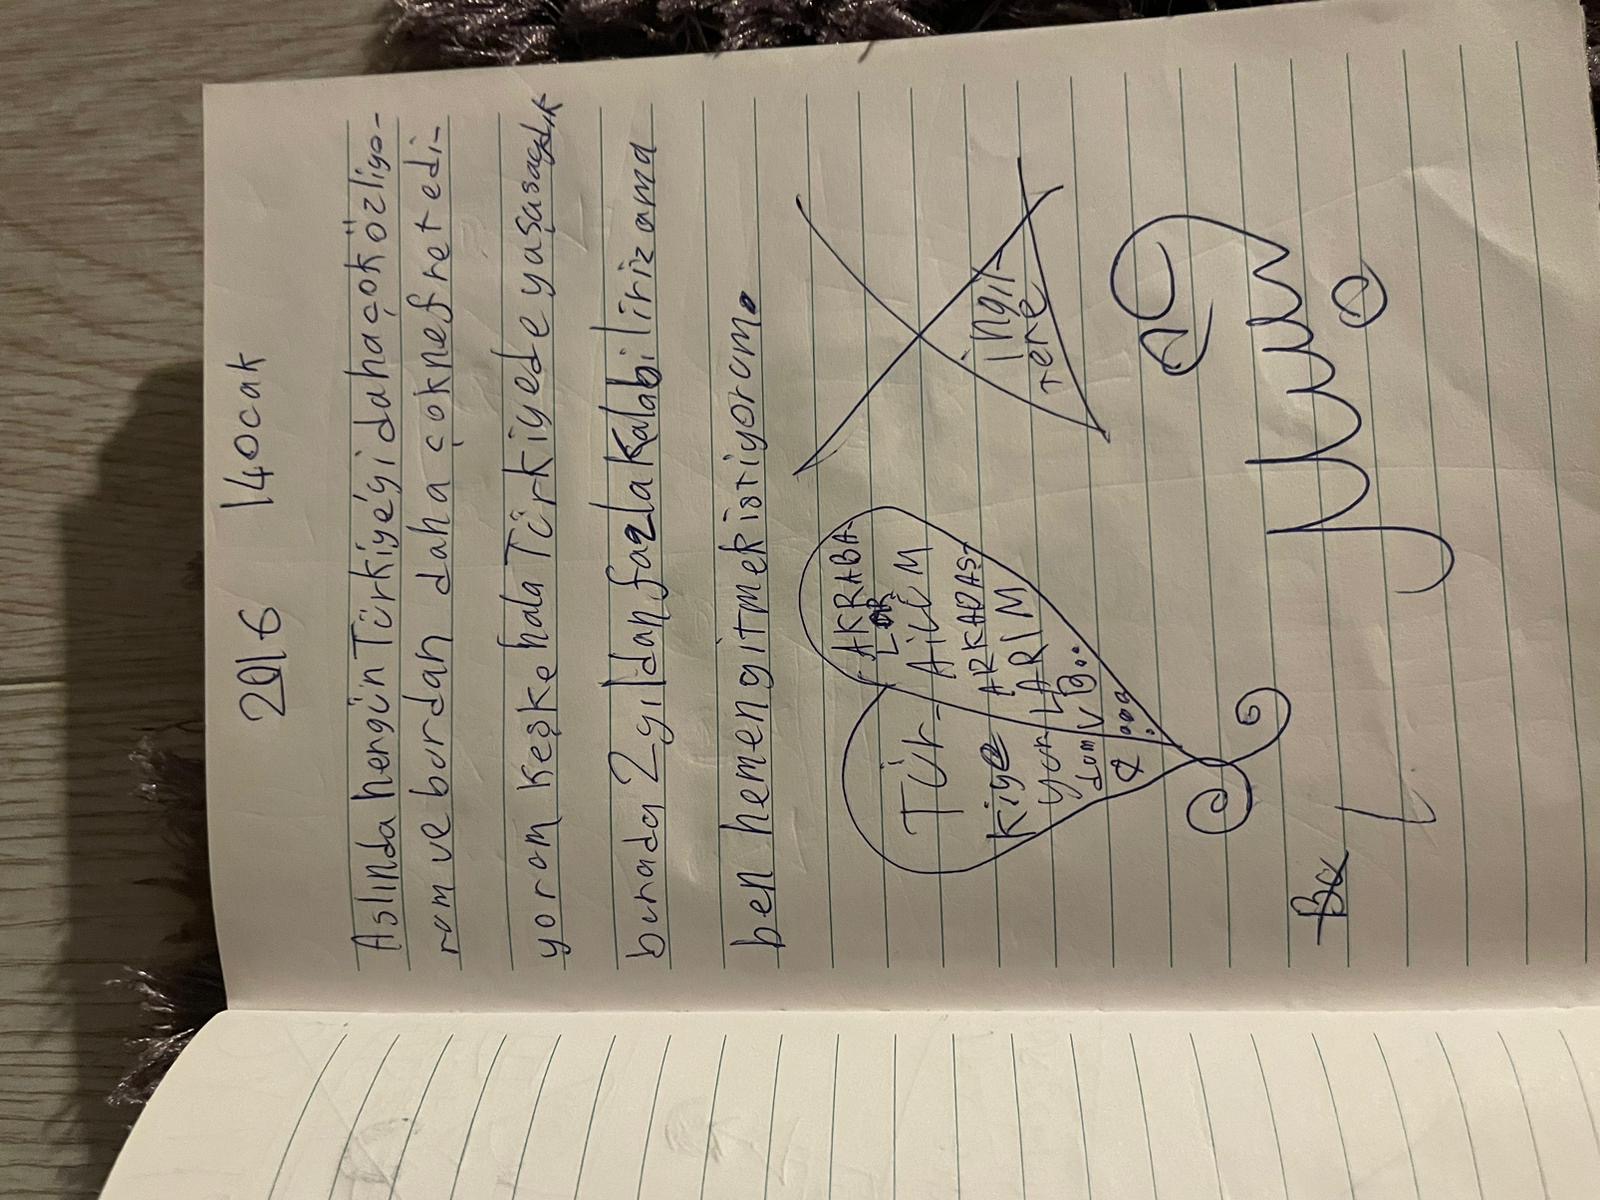 2016 14 ocak
Aslında hergün Türkiyeyi daha çok özlüyo-
rum ve burdan daha çok nefret edi-
yorum keşke hala Türkiyede yaşasaydık
burada 2 yıldan fazla kalabiliriz ama
ben hemen gitmek istiyorum.
AKRABA-
LAR
Tür-
kiye
yur
dum
&
AİLEM
ARKADAŞ
LARIM
VB..
ingil-
tere